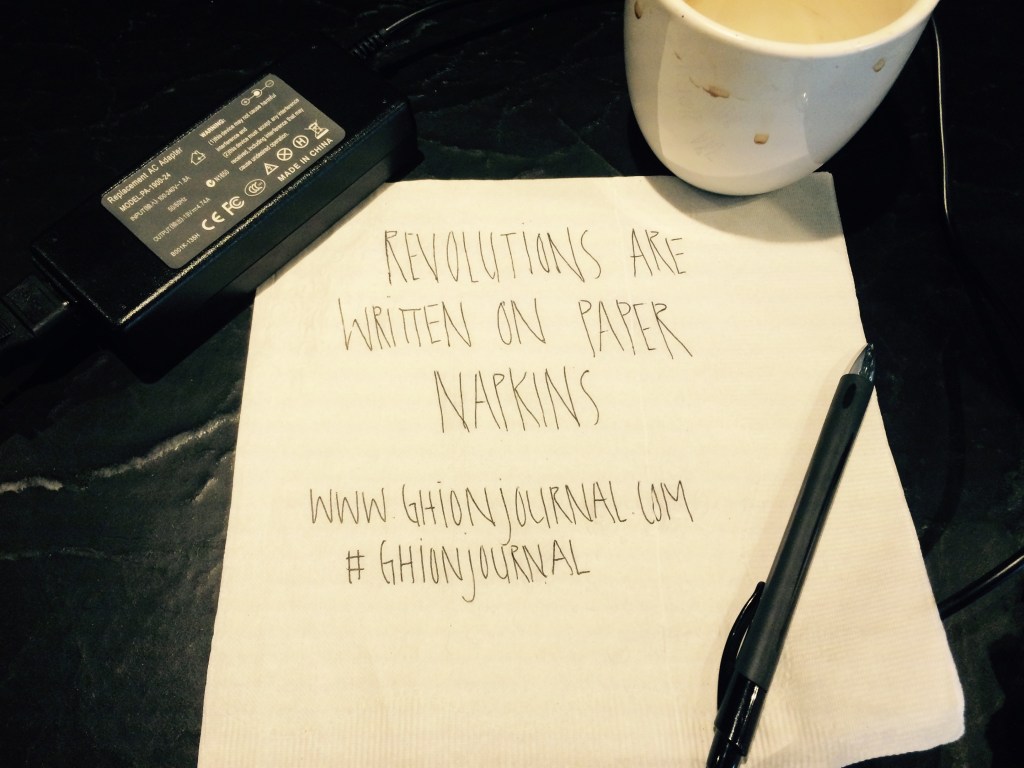 Replacement AC Adapter
MODEL:PA-1900-24
50/60Hz
WARNING:
MADE IN CHINA
REVOLUTIONS ARE
WRITTEN ON PAPER
NAPKINS
WWW.GHIONJOURNAL.COM
#GHIONJOURNAL